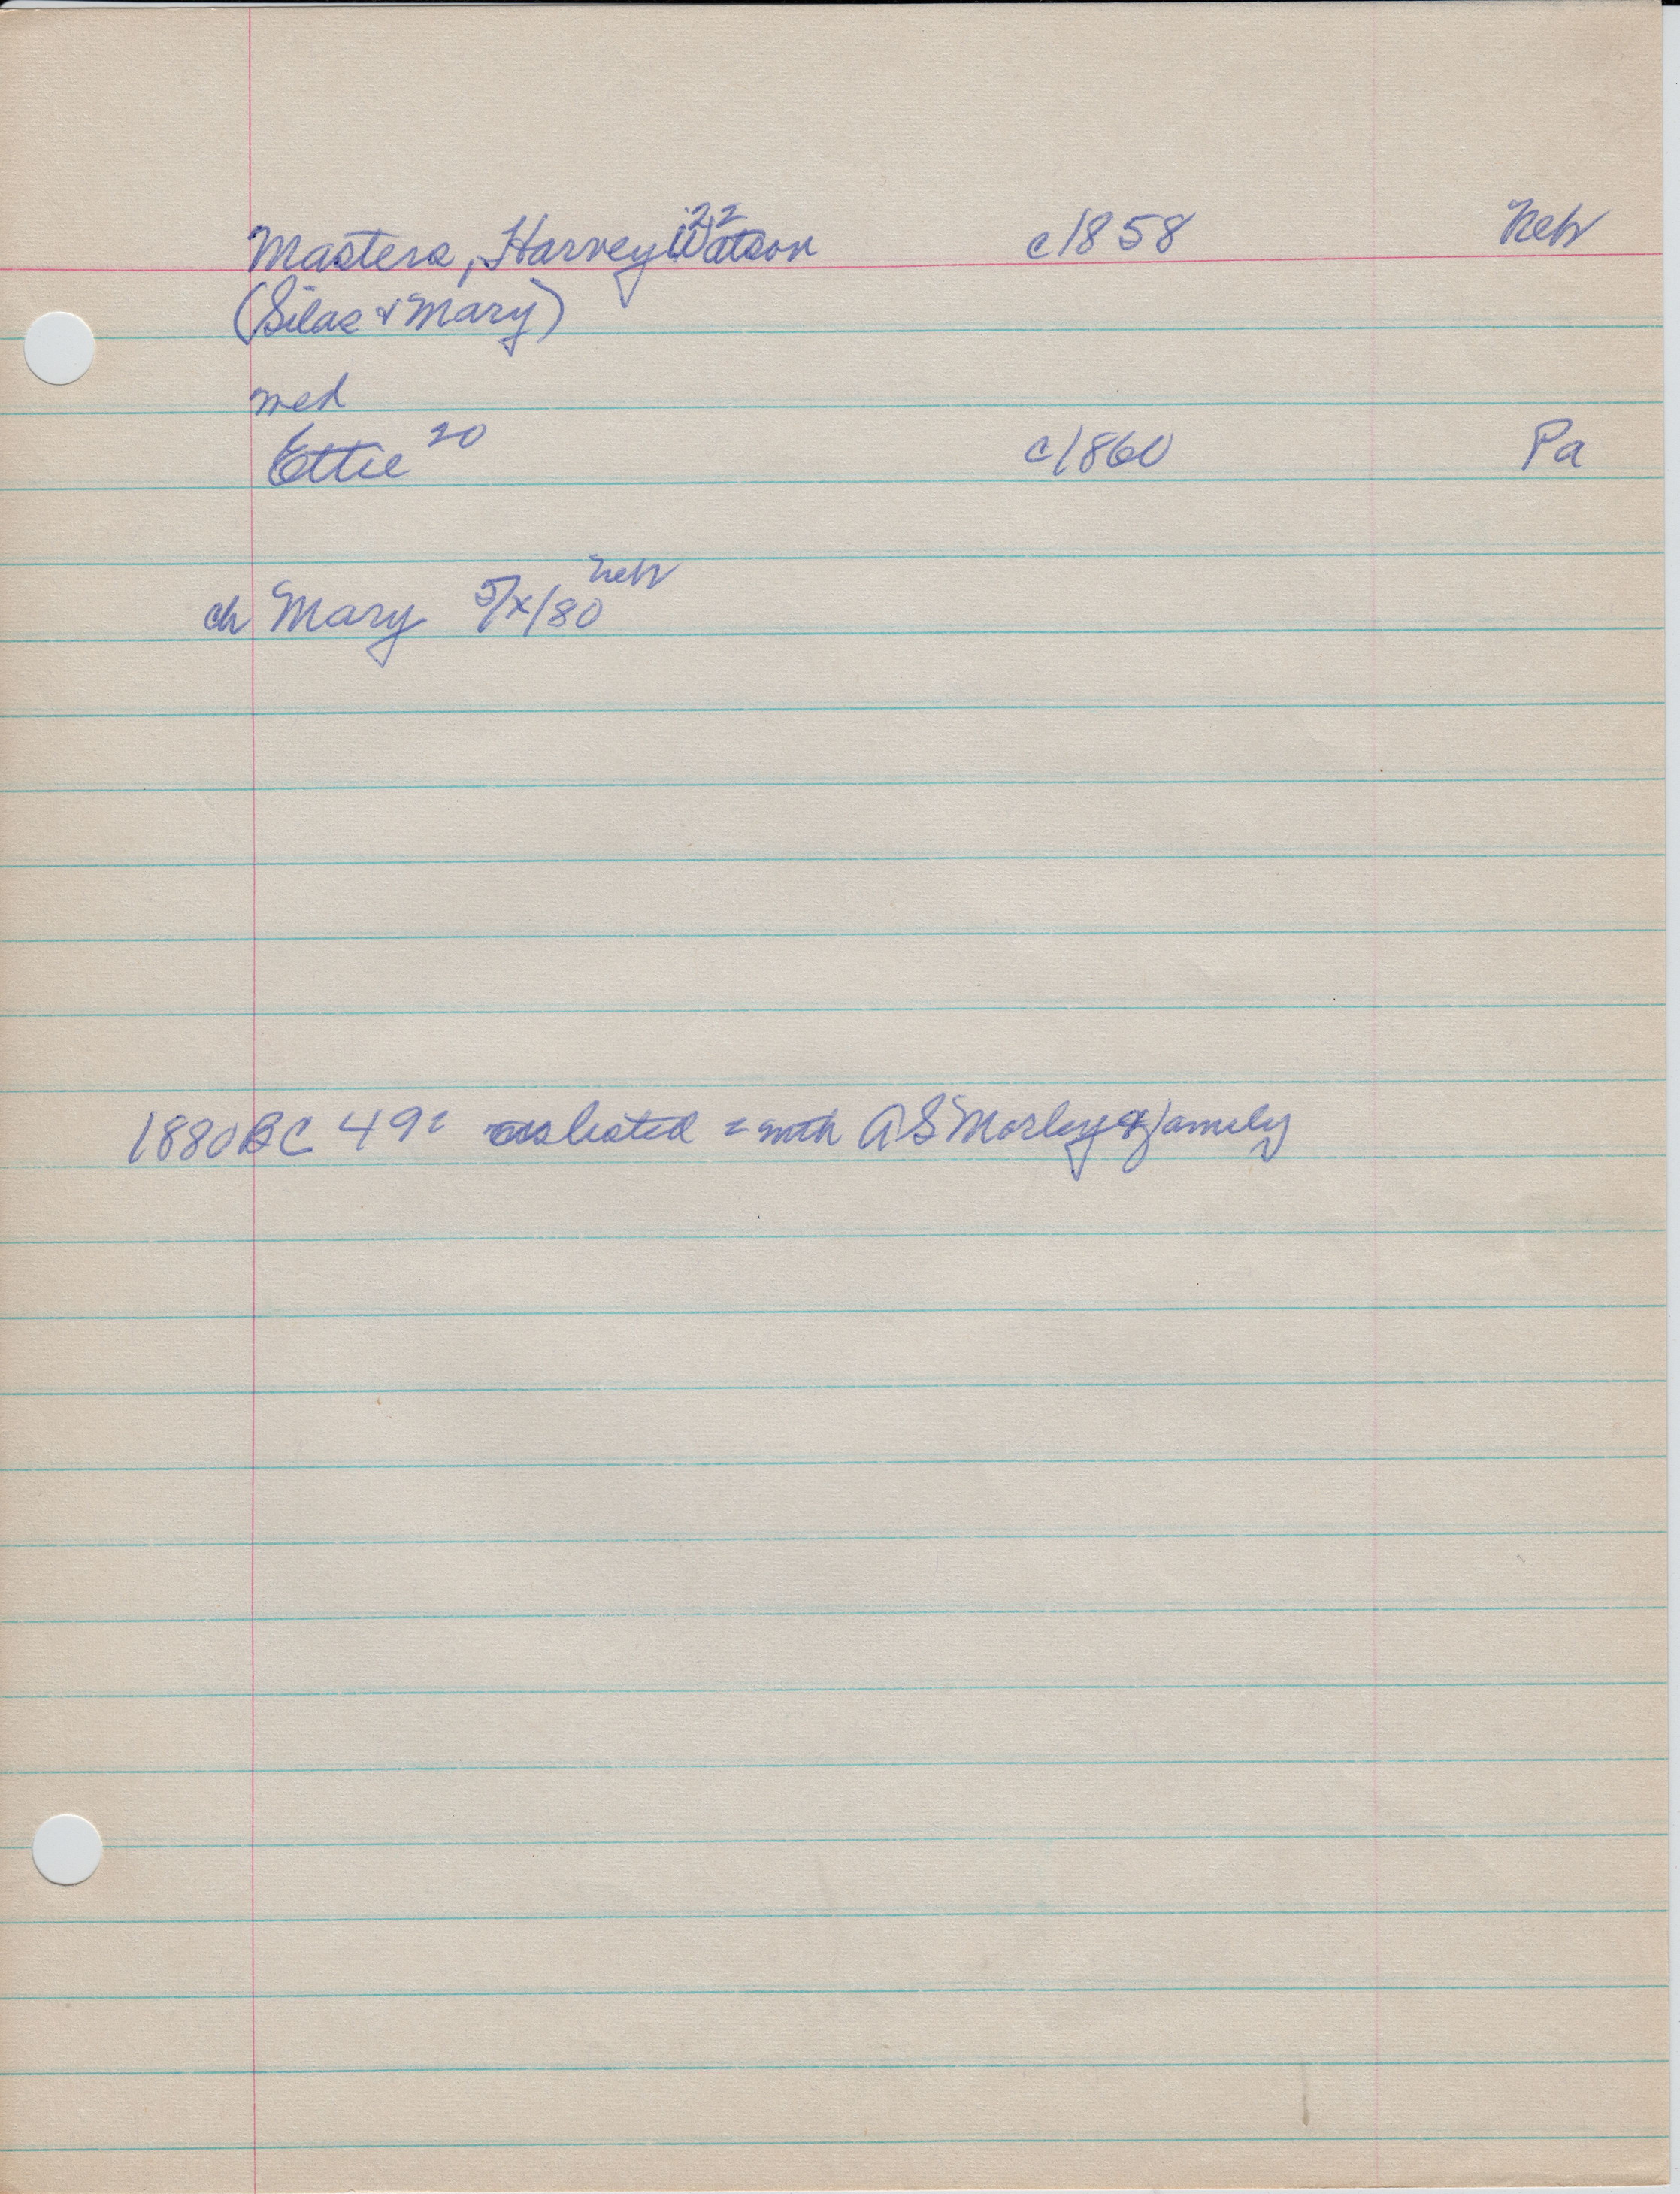 Masters, Harvey Watson 22 c1858 Neb
(Silas & Mary)
med
Ettie 20 c1860 Pa
ch Mary 5/x/80 Neb
1880 BC 492 listed = with A S Morley & family